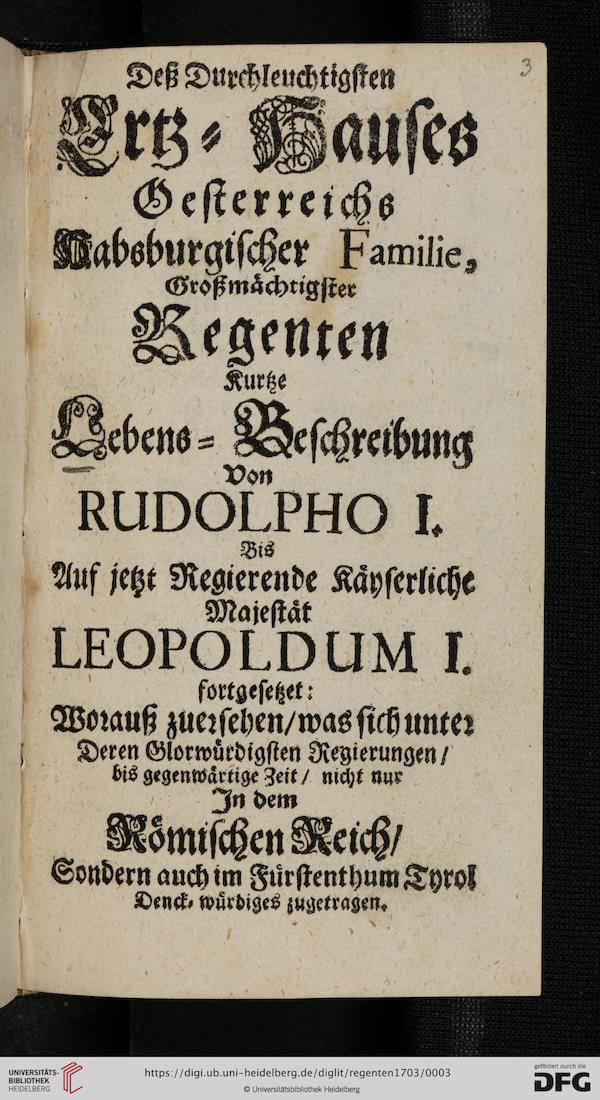 3
Deß Durchleuchtigſten
Ertz- Hauſes
Oeſterreichs
Habsburgiſcher Familie,
Großmächtigſter
Regenten
Kurtze
Lebens- Beſchreibung
Von
RUDOLPHO I.
Bis
Auf jetzt Regierende Käyſerliche
Majeſtät
LEOPOLDUM I.
fortgeſetzet:
Worauß zuerſehen/ was ſich unter
Deren Glorwürdigſten Regierungen/
bis gegenwärtige Zeit/ nicht nur
In dem
Römiſchen Reich/
Sondern auch im Fürſtenthum Tyrol
Denck-würdiges zugetragen.
UNIVERSITÄTS-
BIBLIOTHEK
HEIDELBERG
https://digi.ub.uni-heidelberg.de/diglit/regenten1703/0003
© Universitätsbibliothek Heidelberg
gefördert durch die
DFG